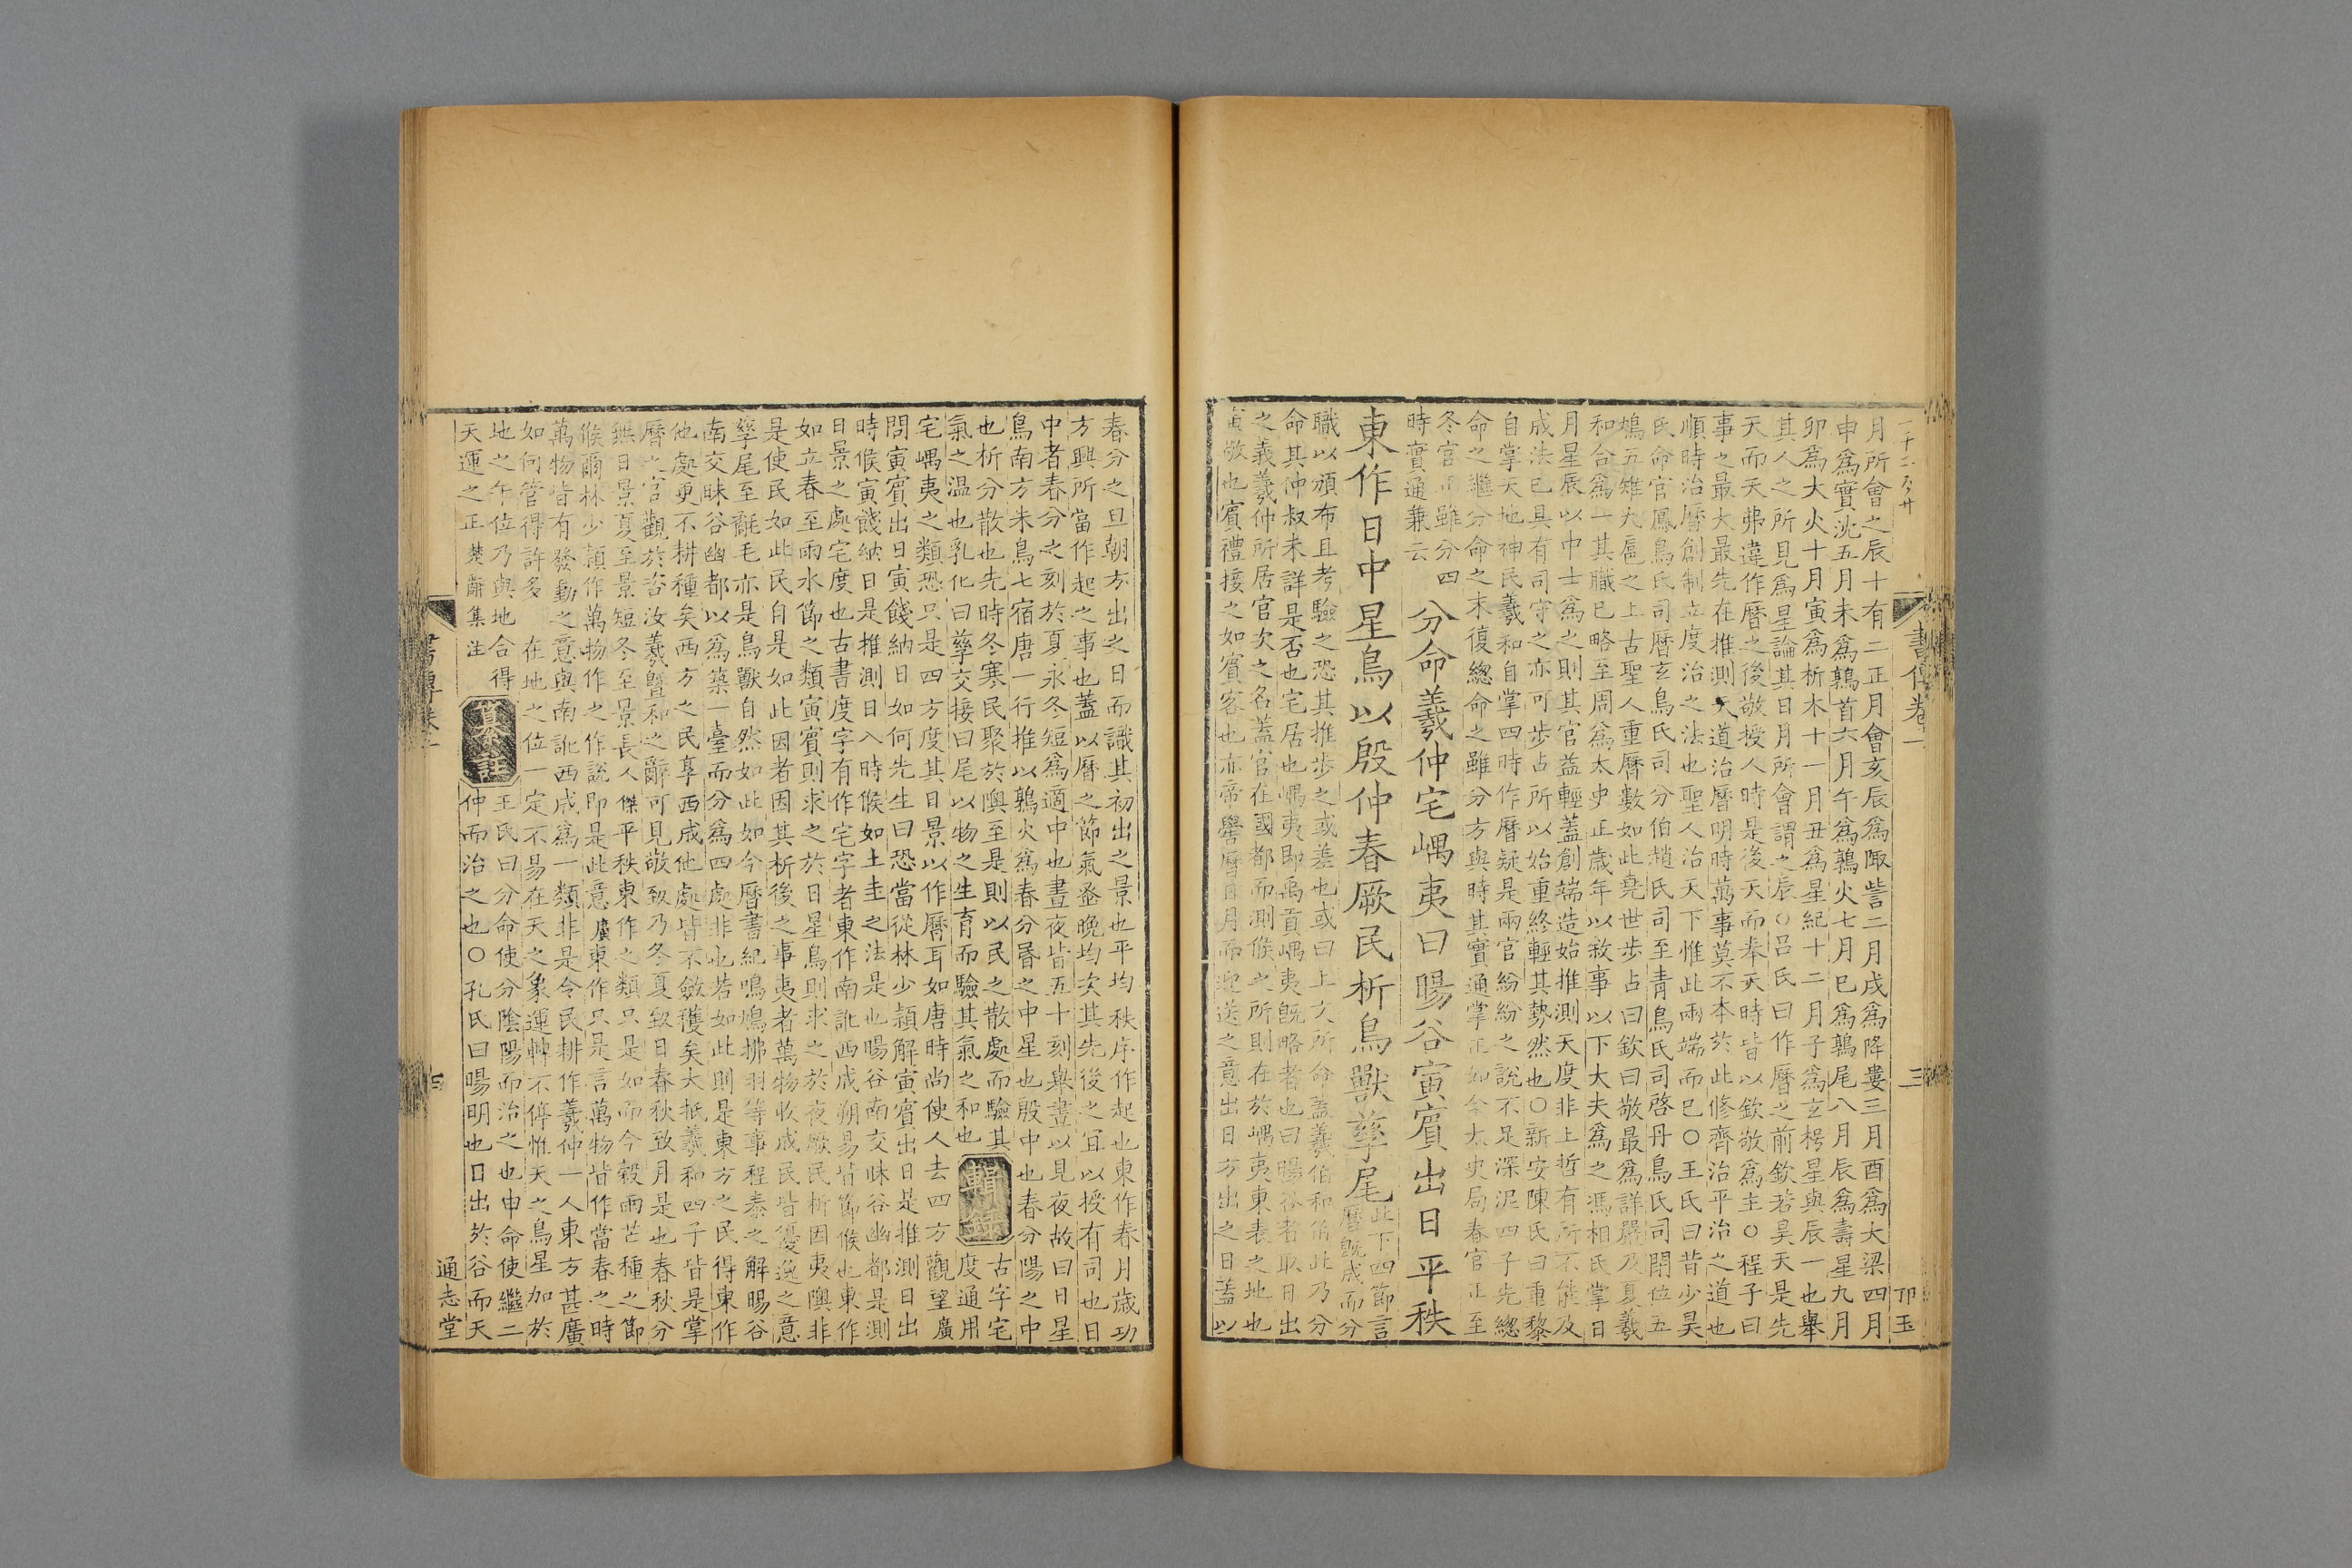 書傳卷一
三
卭玉
月所會之辰十有二正月會亥辰爲陬訾二月戌爲降婁三月酉爲大梁四月
申爲實沈五月未爲鶉首六月午爲鶉火七月巳爲鶉尾八月辰爲壽星九月
卯爲大火十月寅爲析木十一月丑爲星紀十二月子爲玄枵星與辰一也舉
其人之所見爲星論其日月所會謂之辰○呂氏曰作曆之前欽若昊天是先
天而天弗違作曆之後敬授人時是後天而奉天時皆以欽敬爲主○程子曰
事之最大最先在推測天道治曆明時萬事莫不本於此修齊治平治之道也
順時治曆創制立度治之法也聖人治天下惟此兩端而已○王氏曰昔少昊
氏命官鳳鳥氏司曆玄鳥氏司分伯趙氏司至青鳥氏司啓丹鳥氏司閉位五
鳩五雉九扈之上古聖人重曆數如此堯世步占曰欽曰敬最爲詳嚴乃夏羲
和合爲一其職已略至周爲太史正歲年以敘事以下大夫爲之馮相氏掌日
月星辰以中士爲之則其官益輕蓋創端造始推測天度非上哲有所不能及
成法已具有司守之亦可步占所以始重終輕其勢然也○新安陳氏曰重黎
自掌天地神民羲和自掌四時作曆疑是兩官紛紛之說不足深泥四子先總
命之繼分命之末復總命之雖分方與時其實通掌正如今太史局春官正至
冬官正雖分四
時實通兼云
分命羲仲宅嵎夷曰暘谷寅賓出日平秩
東作日中星鳥以殷仲春厥民析鳥獸孳尾
此下四節言
曆既成而分
職以頒布且考驗之恐其推步之或差也或曰上文所命蓋羲伯和伯此乃分
命其仲叔未詳是否也宅居也嵎夷即禹貢嵎夷既略者也曰暘谷者取日出
之義羲仲所居官次之名蓋官在國都而測候之所則在於嵎夷東表之地也
寅敬也賓禮接之如賓客也亦帝嚳曆日月而迎送之意出日方出之日蓋以
春分之旦朝方出之日而識其初出之景也平均秩序作起也東作春月歲功
方興所當作起之事也蓋以曆之節氣蚤晚均次其先後之宜以授有司也日
中者春分之刻於夏永冬短爲適中也晝夜皆五十刻舉晝以見夜故曰日星
鳥南方朱鳥七宿唐一行推以鶉火爲春分昬之中星也殷中也春分陽之中
也析分散也先時冬寒民聚於隩至是則以民之散處而驗其
氣之温也乳化曰孳交接曰尾以物之生育而驗其氣之和也
輯錄
古字宅
度通用
宅嵎夷之類恐只是四方度其日景以作曆耳如唐時尚使人去四方觀望廣
問寅賓出日寅餞納日如何先生曰恐當從林少頴解寅賓出日是推測日出
時候寅餞納日是推測日入時候如土圭之法是也暘谷南交昧谷幽都是測
日景之處宅度也古書度字有作宅字者東作南訛西成朔易皆節候也東作
如立春至雨水節之類寅賓則求之於日星鳥則求之於夜厥民析因夷隩非
是使民如此民自是如此因者因其析後之事夷者萬物收成民皆優逸之意
孳尾至氄毛亦是鳥獸自然如此如今曆書紀鳴鳩拂羽等事程泰之解暘谷
南交昧谷幽都以爲築一臺而分爲四處非也若如此則是東方之民得東作
他處更不耕種矣西方之民享西成他處皆不斂穫矣大抵羲和四子皆是掌
曆之官觀於咨汝羲暨和之辭可見敬致乃冬夏致日春秋致月是也春秋分
無日景夏至景短冬至景長人傑平秩東作之類只是如而今穀雨芒種之節
候爾林少頴作萬物作之作說即是此意廣東作只是言萬物皆作當春之時
萬物皆有發動之意與南訛西成爲一類非是令民耕作羲仲一人東方甚廣
如何管得許多
在地之位一定不易在天之象運轉不停惟天之鳥星加於
地之午位乃與地合得
天運之正楚辭集注
纂註
王氏曰分命使分陰陽而治之也申命使繼二
仲而治之也○孔氏曰暘明也日出於谷而天
書傳卷一
通志堂